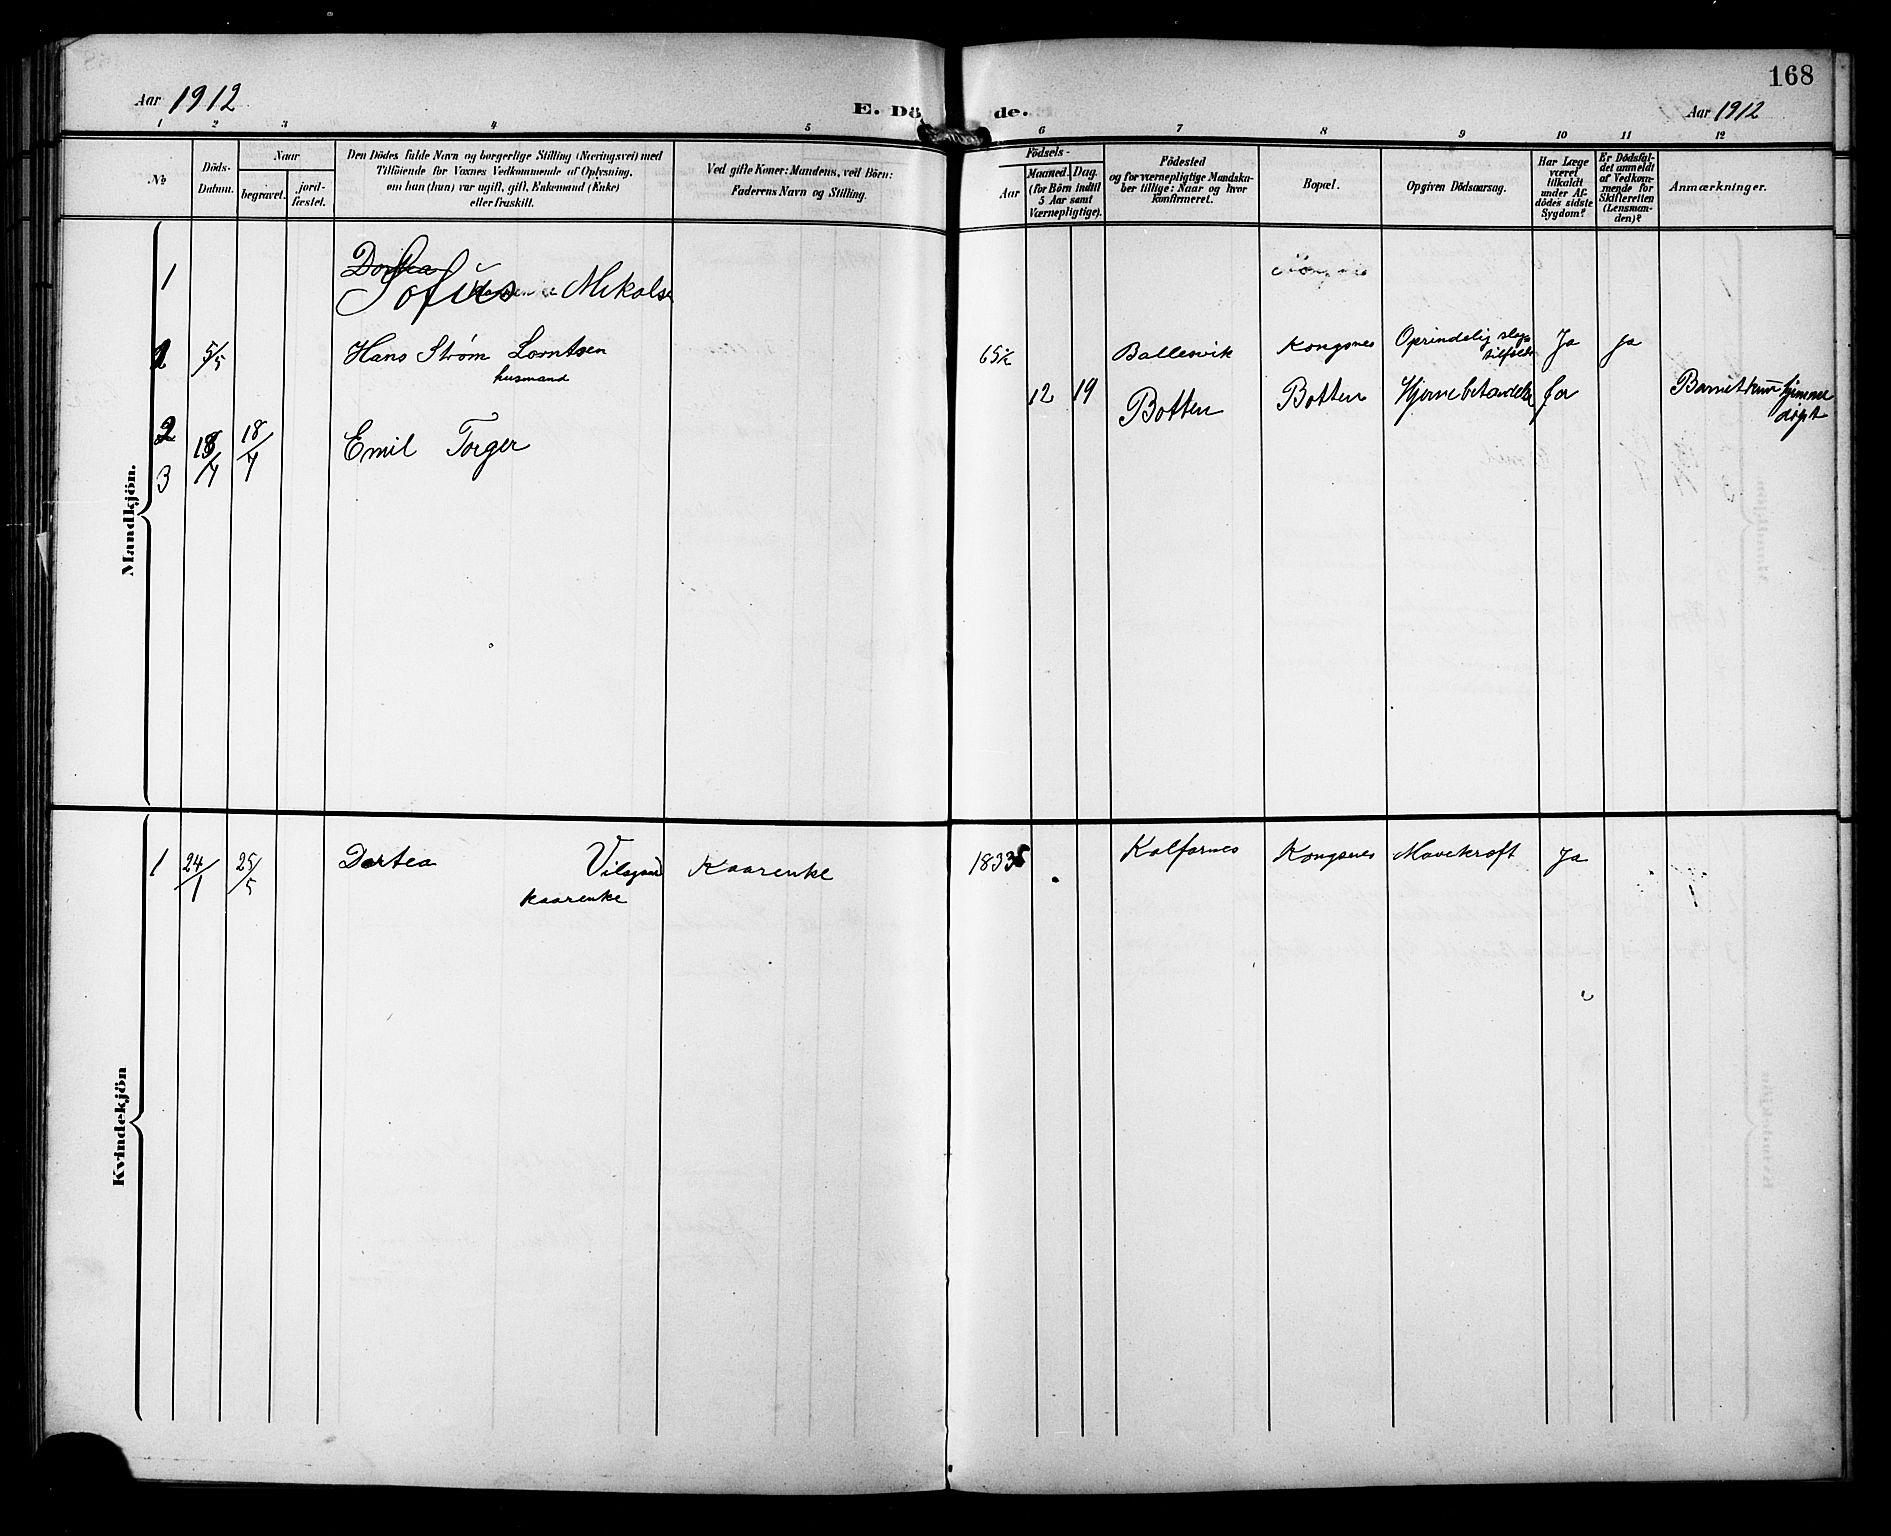 168
Aar 1912
E. Dö de.
Aar 1912
1 2 3 4 5 6 7 8 9 10 11 12
No
Döds-
Datum.
Naar
begravet.
jord-
fæstet.
Den Dödes fulde Navn og borgerlige Stilling (Næringsvei) med
Tilföiende for Voxnes Vedkommende af Oplysning,
om han (hun) var ugift, gift, Enkemand (Enke)
eller fraskilt.
Ved gifte Koner: Mandens, ved Börn:
Faderens Navn og Stilling.
Födsels-
Aar
Maaned. Dag.
(for Börn indtil
5 Aar samt
Værnepligtige).
Födested
og for værnepligtige Mandska-
ber tillige: Naar og hvor
konfirmeret.
Bopæl.
Opgiven Dödsaarsag.
Har Læge
været
tilkaldt
under Af-
dödes sidste
Sygdom?
Er Dödsfal-
det anmeldt
af Vedkom-
mende for
Skifteretten
(Lensman-
den)?
Anmærkninger.
Mandkjön.
1 Dortea
Sofius Mikalse
2 5/5 Hans Strøm Lorntsen 65 Ballesvik Kongsnes Oprindelig Ja Ja
husmand
2 18/7 18/7 Emil Torger 12 19 Botten Botten Hjernebetændelse Barnet kun hjemme
3 døpt
Kvindekjön
1 24/1 25/5 Dortea Kaarenke 1833 Kalfarnes Kongsnes Mavekræft Ja
Kaarenke